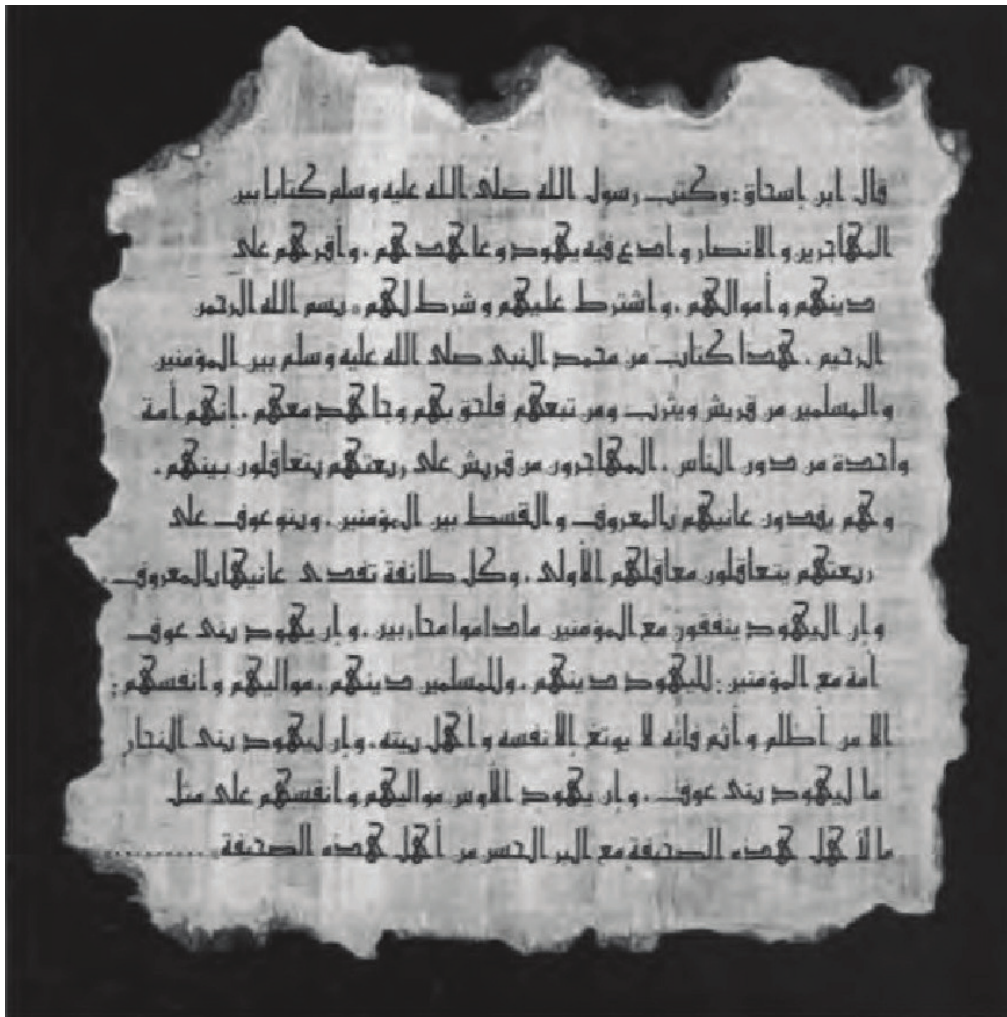 قال ابن إسحاق: وكتب رسول الله صلى الله عليه وسلم كتابا بين
المهاجرين والانصار وادع فيه يهود وعاهدهم، وأقرهم على
دينهم وأموالهم، واشترط عليهم وشرط لهم: بسم الله الرحمن
الرحيم، هذا كتاب من محمد النبي صلى الله عليه وسلم بين المؤمنين
والمسلمين من قريش ويثرب ومن تبعهم فلحق بهم وجاهد معهم، إنهم أمة
واحدة من دون الناس، المهاجرون من قريش على ربعتهم يتعاقلون بينهم،
وهم يفدون عانيهم بالمعروف والقسط بين المؤمنين، وبنو عوف على
ربعتهم يتعاقلون معاقلهم الأولى، وكل طائفة تفدى عانيها بالمعروف
وإن اليهود ينفقون مع المؤمنين ماداموا محاربين، وإن يهود بنى عوف
أمة مع المؤمنين: لليهود دينهم، وللمسلمين دينهم، مواليهم وانفسهم:
إلا من أظلم وأثم فانه لا يوتغ إلا نفسه وأهل بيته، وإن ليهود بنى النجار
ما ليهود بنى عوف، وإن يهود الأوس مواليهم وأنفسهم على مثل
ما لأهل هذه الصحيفة مع البر الحسن من أهل هذه الصحيفة..........